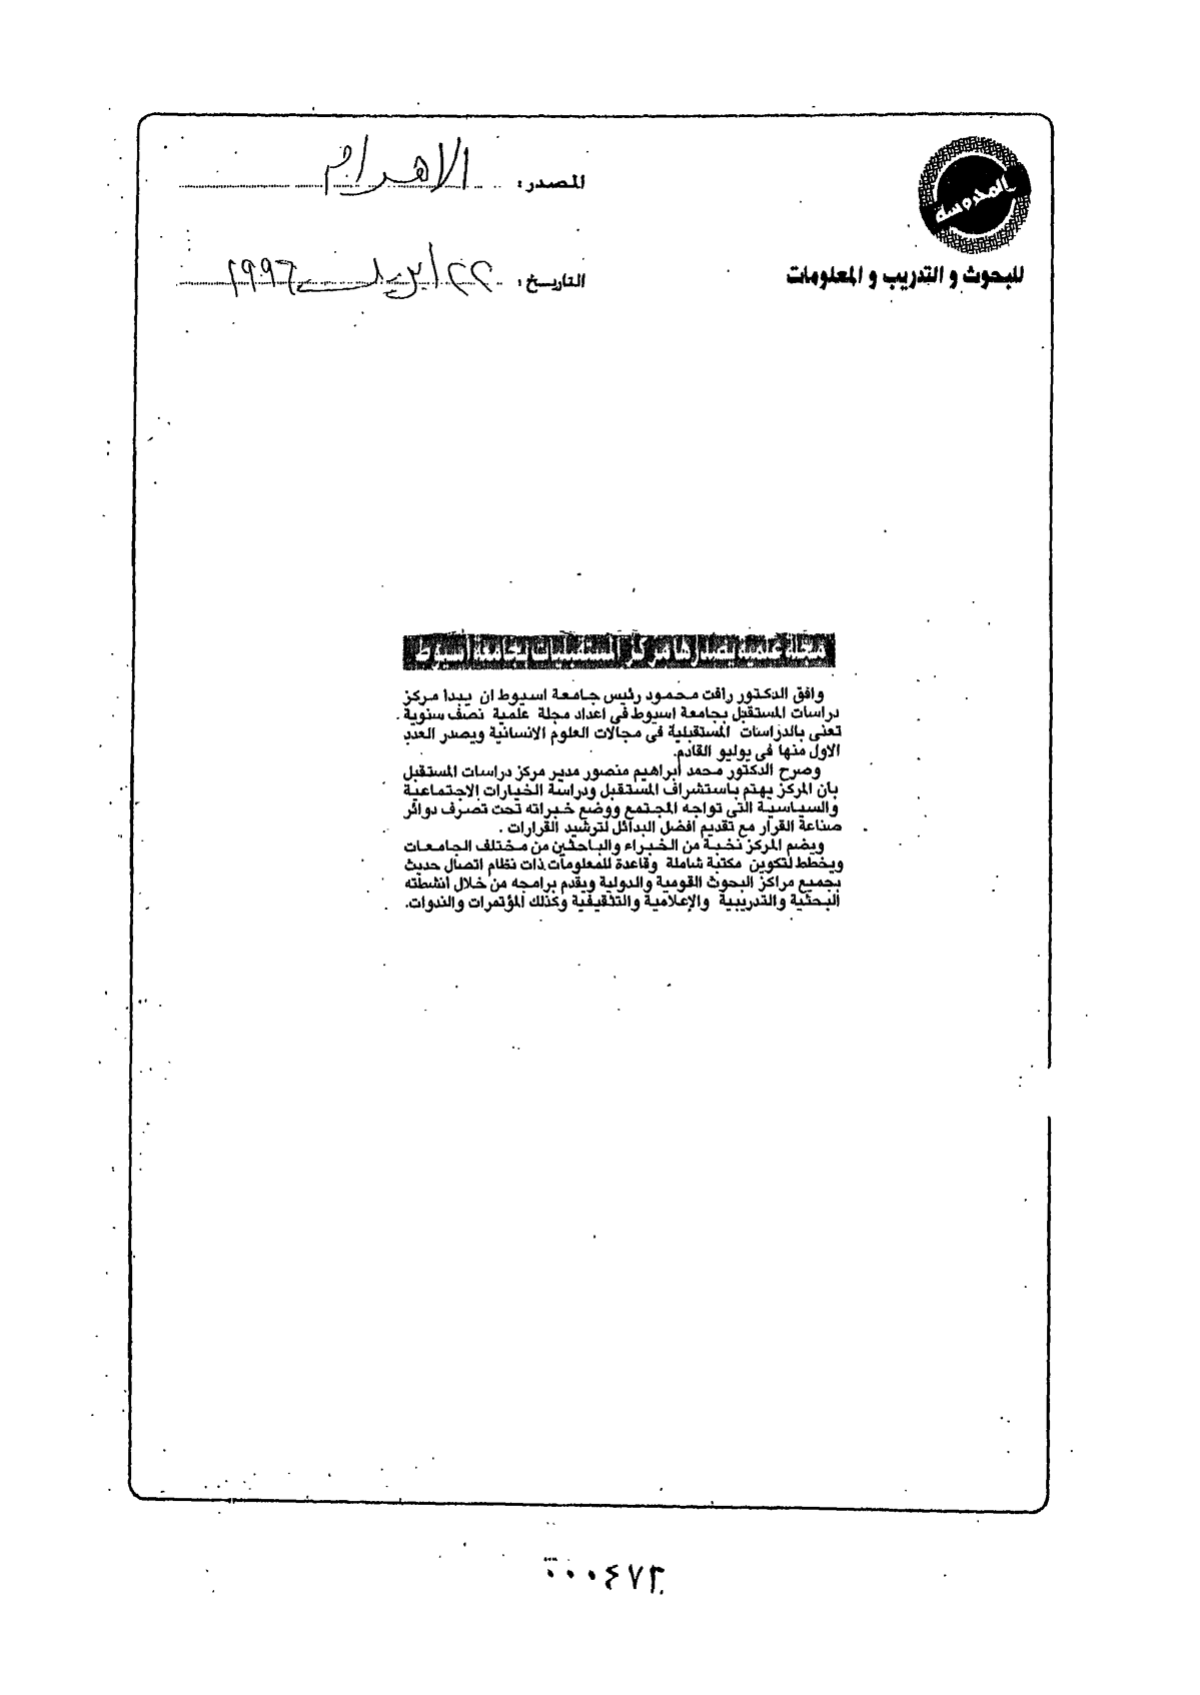 المحروسة
للبحوث و التدريب و المعلومات
المصدر: الاهرام
التاريخ: ٢٢ ابريل ١٩٩٦
مجلة علمية يصدرها مركز المستقبليات بجامعة أسيوط
وافق الدكتور رافت محمود رئيس جامعة اسيوط ان يبدا مركز
دراسات المستقبل بجامعة اسيوط فى اعداد مجلة علمية نصف سنوية .
تعنى بالدراسات المستقبلية فى مجالات العلوم الانسانية ويصدر العدد
الاول منها فى يوليو القادم.
وصرح الدكتور محمد أبراهيم منصور مدير مركز دراسات المستقبل
بان المركز يهتم باستشراف المستقبل ودراسة الخيارات الاجتماعية
والسياسية التى تواجه المجتمع ووضع خبراته تحت تصرف دوائر
صناعة القرار مع تقديم افضل البدائل لترشيد القرارات .
ويضم المركز نخبة من الخبراء والباحثين من مختلف الجامعات
ويخطط لتكوين مكتبة شاملة وقاعدة للمعلومات ذات نظام اتصال حديث
بجميع مراكز البحوث القومية والدولية ويقدم برامجه من خلال انشطته
البحثية والتدريبية والإعلامية والتثقيفية وكذلك المؤتمرات والندوات.
٠٠٠٤٧٢